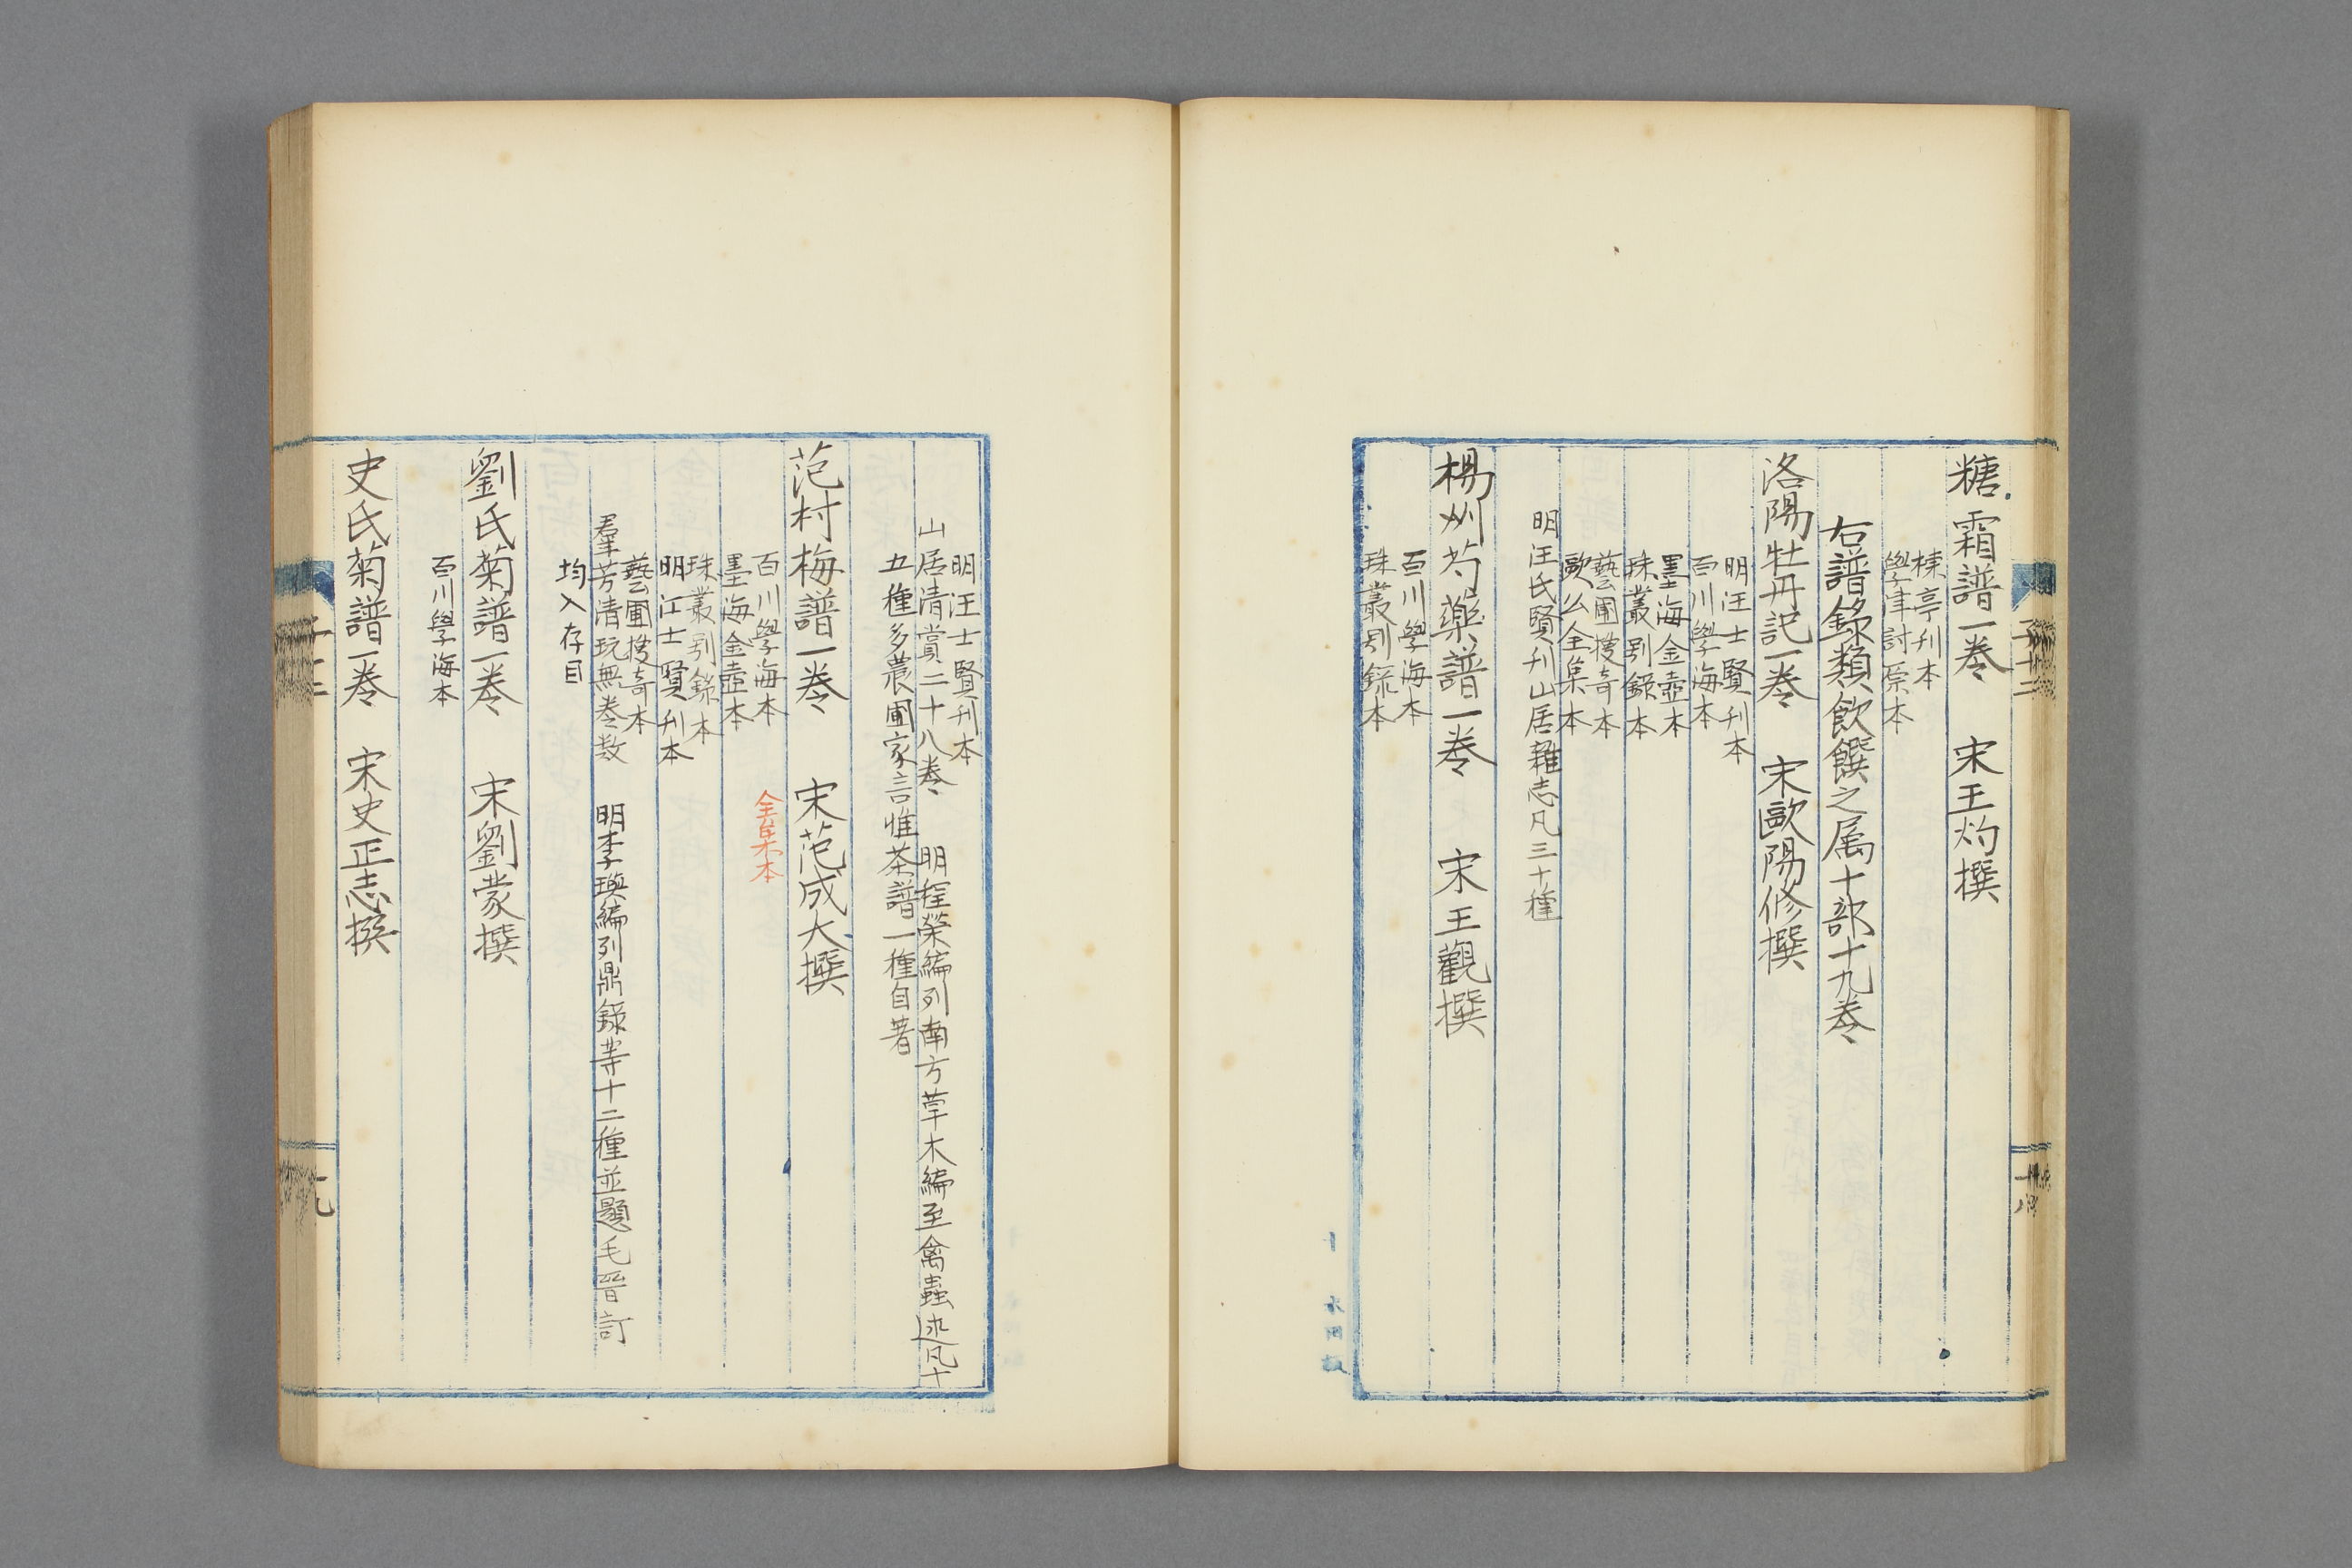 糖霜譜一卷　宋王灼撰
棟亭刊本
學津討原本
右譜錄類飲饌之属十部十九卷
洛陽牡丹記一卷　宋歐陽修撰
明汪士賢刊本
百川學海本
墨海金壺本
珠叢別錄本
藝圃搜奇本
歐公全集本
明汪氏賢刊山居雜志凡三十種
楊州芍藥譜一卷　宋王觀撰
百川學海本
珠叢別錄本
子十二
十八
明汪士賢刊本
山居清賞二十八卷　明程榮編列南方草木編至禽蟲述凡十
五種多農圃家言惟茶譜一種自著
范村梅譜一卷　宋范成大撰
百川學海本　全集本
墨海金壺本
珠叢別錄本
明江士賢刊本
藝圃搜奇本
羣芳清玩無卷数　明李璵編列鼎錄等十二種並題毛晉訂
均入存目
劉氏菊譜一卷　宋劉蒙撰
百川學海本
史氏菊譜一卷　宋史正志撰